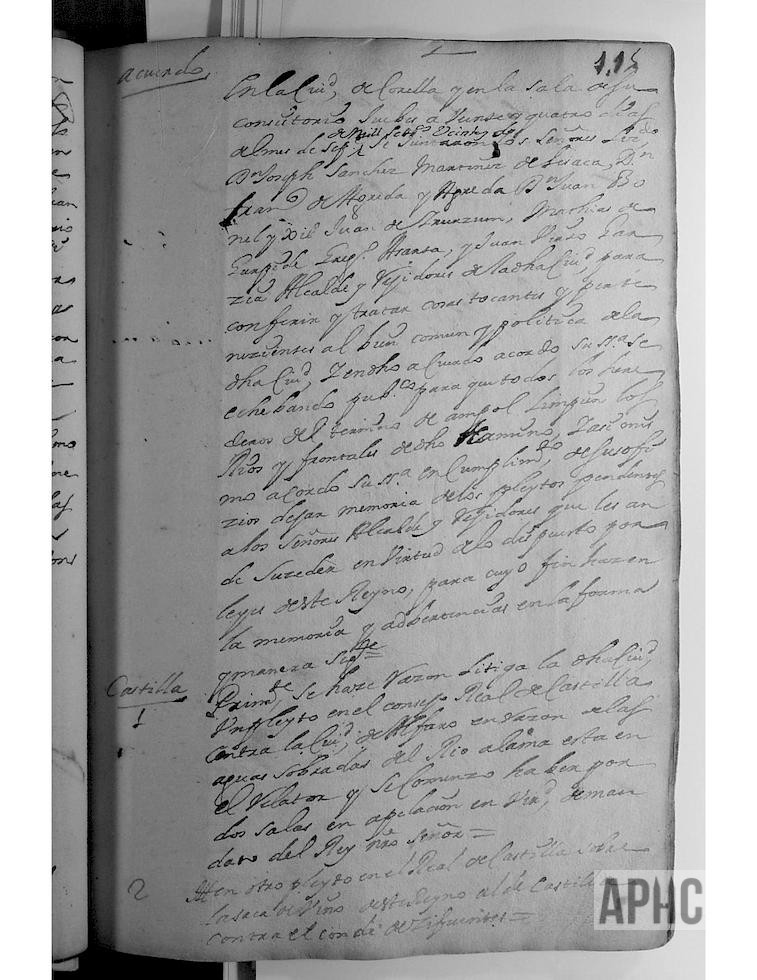 115
acuerdo
En la Ciud, de Corella y en la sala de su
consultorio Juebes a Veinte y quatro dias
de mill setts Veinte y
del mes de Sepe se Juntaron los señores Lizdo
Dn Joseph Sanchez Martinez de Lesaca, Dn
Franco de Agreda y Agreda Dn Juan Bo
nel y Juan de Mathias
y Juan Virto Gar
zia Alcalde y Rejidores de la dha Ciud, para
conferir y tratar cosas tocantes y perte
nezientes al bien comun y politica de la
dha Ciud, Y en dho acuerdo acordo su sa se
eche bando pubco para que todos los here
deros del termino de ampol limpien los
Rios y frontales de dho Camino, Y asi mis
mo acordo su sa en Cumplimto de su ofi
zio dejar memoria de los pleytos pendientes
a los Señores Alcalde y Rejidores que les an
de Suzeder en Virtud de lo dispuesto por
leyes de este Reyno, para cuyo fin hazen
la memoria y adbertencias en la forma
y manera sigte =
Castilla
1
Primte se haze Razon litiga la dha Ciud,
Un pleyto en el consejo Real de Castilla
contra la Ciud, de Alfaro en razon de las
aguas sobradas del Rio alama esta en
el Relator y se Comenzo haber por
dos salas en apelacion en Vird, de man
dato del Rey nro Señor =
2
en otro pleyto en el Real de Castilla sobre
la saca de Vino de este Reyno al de Castilla
contra el conde de Zifuentes =
APHC